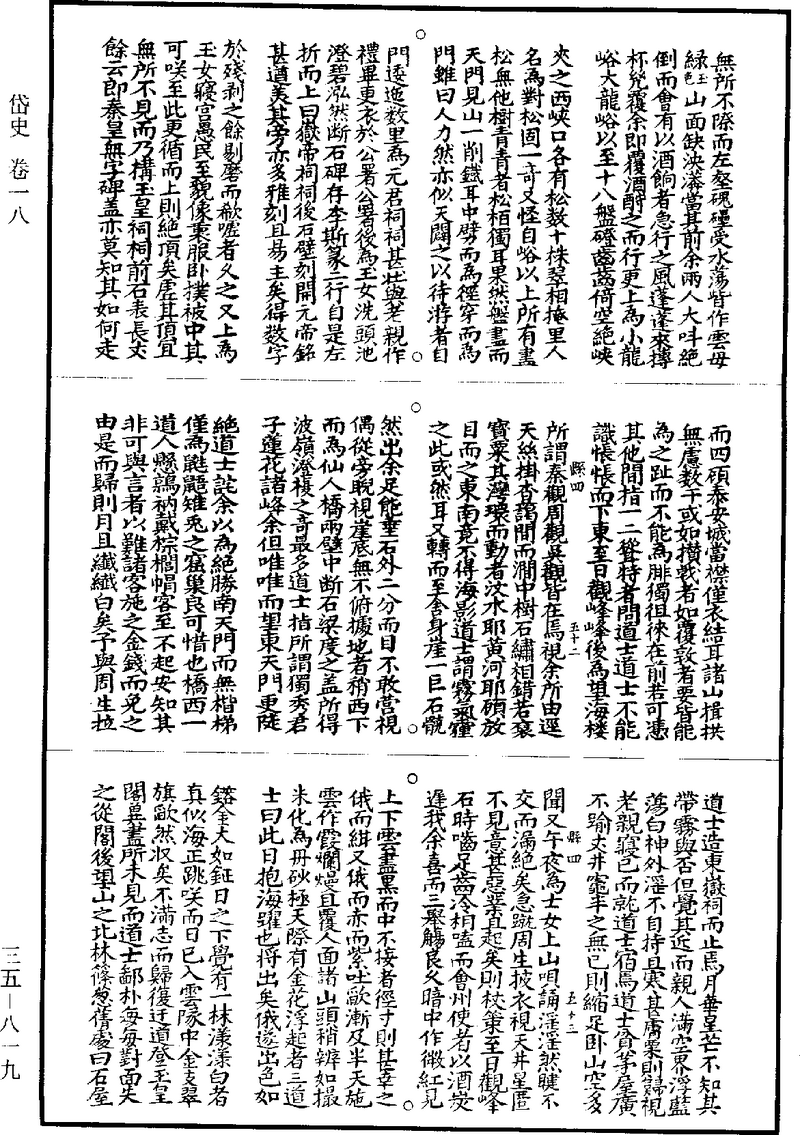 岱史 卷一八
無所不際而左壑磈礧受水蕩皆作雲母
緑玉色山面缺泱漭當其前余兩人大呌絶
倒而會有以酒餉者急行之風蓬蓬來摶
杯兕覆余即覆酒酹之而行更上為小龍
峪大龍峪以至十八盤磴齒齒倚空絶峽
夾之西峽口各有松数十株翠相掩里人
名為對松固一奇又怪自峪以上所有盡
松無他樹青青者松栢獨耳果然盤盡而
天門見山一削鐡耳中劈而為徑穿而為
門雖曰人力然亦似天闢之以待游者自
門逶迤数里為元君祠祠甚壮與老親作
禮畢更衣於公署公署後為玉女洗頭池
澄碧泓然断石碑存李斯篆二行自是左
折而上曰嶽帝祠祠後石壁刻開元帝銘
甚遒美其旁亦多雅刻且易主矣得数字
於殘剥之餘剔磨而欷噓者久之又上為
玉女寢宫愚民至貌像裹服卧襆被中其
可咲至此更循而上則絶頂矣虗耳頂宜
無所不見而乃構玉皇祠祠前石表長丈
餘云即秦皇無字碑盖亦莫知其如何走
而四碩泰安城當襟僅衣結耳諸山揖拱
無慮数千或如攅戟者如覆敦者要皆能
為之趾而不能為腓獨徂徠在前若可憑
其他間指一二聳特者問道士道士不能
識悵悵而下東至日觀峰峰後為望海楼
縣四 五十二
所謂秦觀周觀吳觀皆在焉視余所由逕
天絲掛杳藹間而澗中樹石繡相錯若裹
寳粟其灣環而動者汶水耶黄河耶碩放
目而之東南竟不得海影道士謂霧氣瞳
之此或然耳又轉而至舎身崖一巨石髖
然出余足能垂石外二分而目不敢营視
偶從旁睨視崖底無不俯據地者稍西下
而為仙人橋兩壁中断石梁度之盖所得
波嶺澄複之奇最多道士指所謂獨秀君
子蓮花諸峰余但唯唯而望東天門更陡
絶道士詫余以為絶勝南天門而無楷梯
僅為鼪鼯雉兎之窟巢良可惜也橋西一
道人懸鶉衲戴棕櫚帽客至不起安知其
非可與言者以難諸客施之金錢而免之
由是而歸則月且纎纎白矣予與周生拉
道士造東嶽祠而止焉月華星芒不知其
帶霧與否但覺其近而親人滿空界浮藍
蕩白神外滛不自持且寒甚膚粟則歸視
老親寢已而就道士宿焉道士賁茅屋廣
不踰丈井竈半之無已則縮足卧山空多
聞又午夜為士女上山唄誦滛滛然睫不
縣四 五十三
交而漏絶矣急蹴周生披衣視天井星匿
不見意甚惡業且起矣則杖策至日觀峰
石時嚙足齒冷相嗑而會州使者以酒炭
遲我余喜而三舉觴良久暗中作微紅見
上下雲盡黒而中不接者徑寸則甚幸之
俄而紺又俄而赤而紫吐歐漸及半天施
雲作霞爛熳且覆人面諸山頭稍辨如撮
米化為丹砂極天際有金花浮起者三道
士曰此日抱海躍也将出矣俄遂出色如
鎔金大如鉦日之下學有一抹漾漾白者
真似海正跳咲而日已入雲隊中金支翠
旗歐然収矣不满志而歸復迂道登玉皇
閣異盡所未見而道士鄙朴每每對面失
之從閣後望山之北林篠葱蒨處曰石屋
三五—八一九